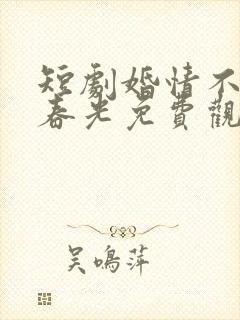 短劇婚情不
春光免費觀
吳鳴萍